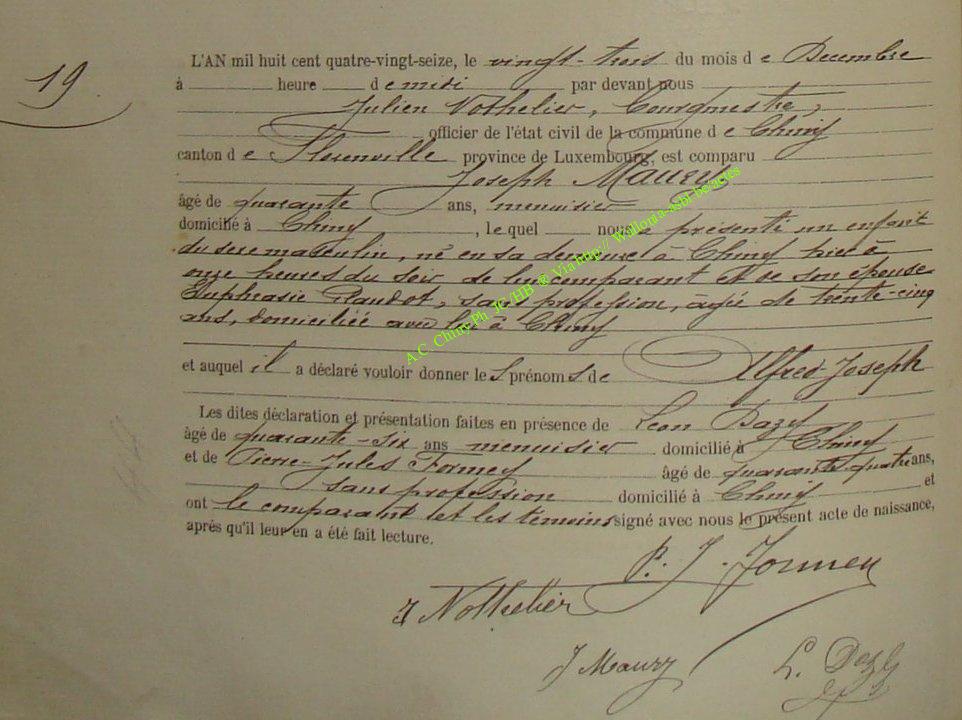 19
L'AN mil huit cent quatre-vingt-seize, le vingt-trois du mois d e Decembre
à heure d e midi par devant nous
Julien Nothelier, Bourgmestre,
officier de l'état civil de la commune d e Chiny
canton d e Florenville province de Luxembourg, est comparu
Joseph Maury
âgé de quarante ans, menuisier
domicilié à Chiny, le quel nous a présenté un enfant
du sexe masculin, né en sa demeure à Chiny hier à
onze heures du soir de lui comparant et de son épouse
Euphrasie Plaudot, sans profession, âgée de trente-cinq
ans, domiciliée avec lui à Chiny
et auquel il a déclaré vouloir donner le s prénom s de Alfred Joseph
Les dites déclaration et présentation faites en présence de Léon Dazy
âgé de quarante-six ans menuisier domicilié à Chiny
et de Pierre-Jules Formey âgé de quarante quatre ans,
sans profession domicilié à Chiny et
ont le comparant et les témoins signé avec nous le présent acte de naissance,
après qu'il leur en a été fait lecture.
P. J. Formey
J Nothelier
J Maury
L. Dazy
A.C. Chiny Ph JC HB ® Via http:// Wallonia-asbl-be/actes